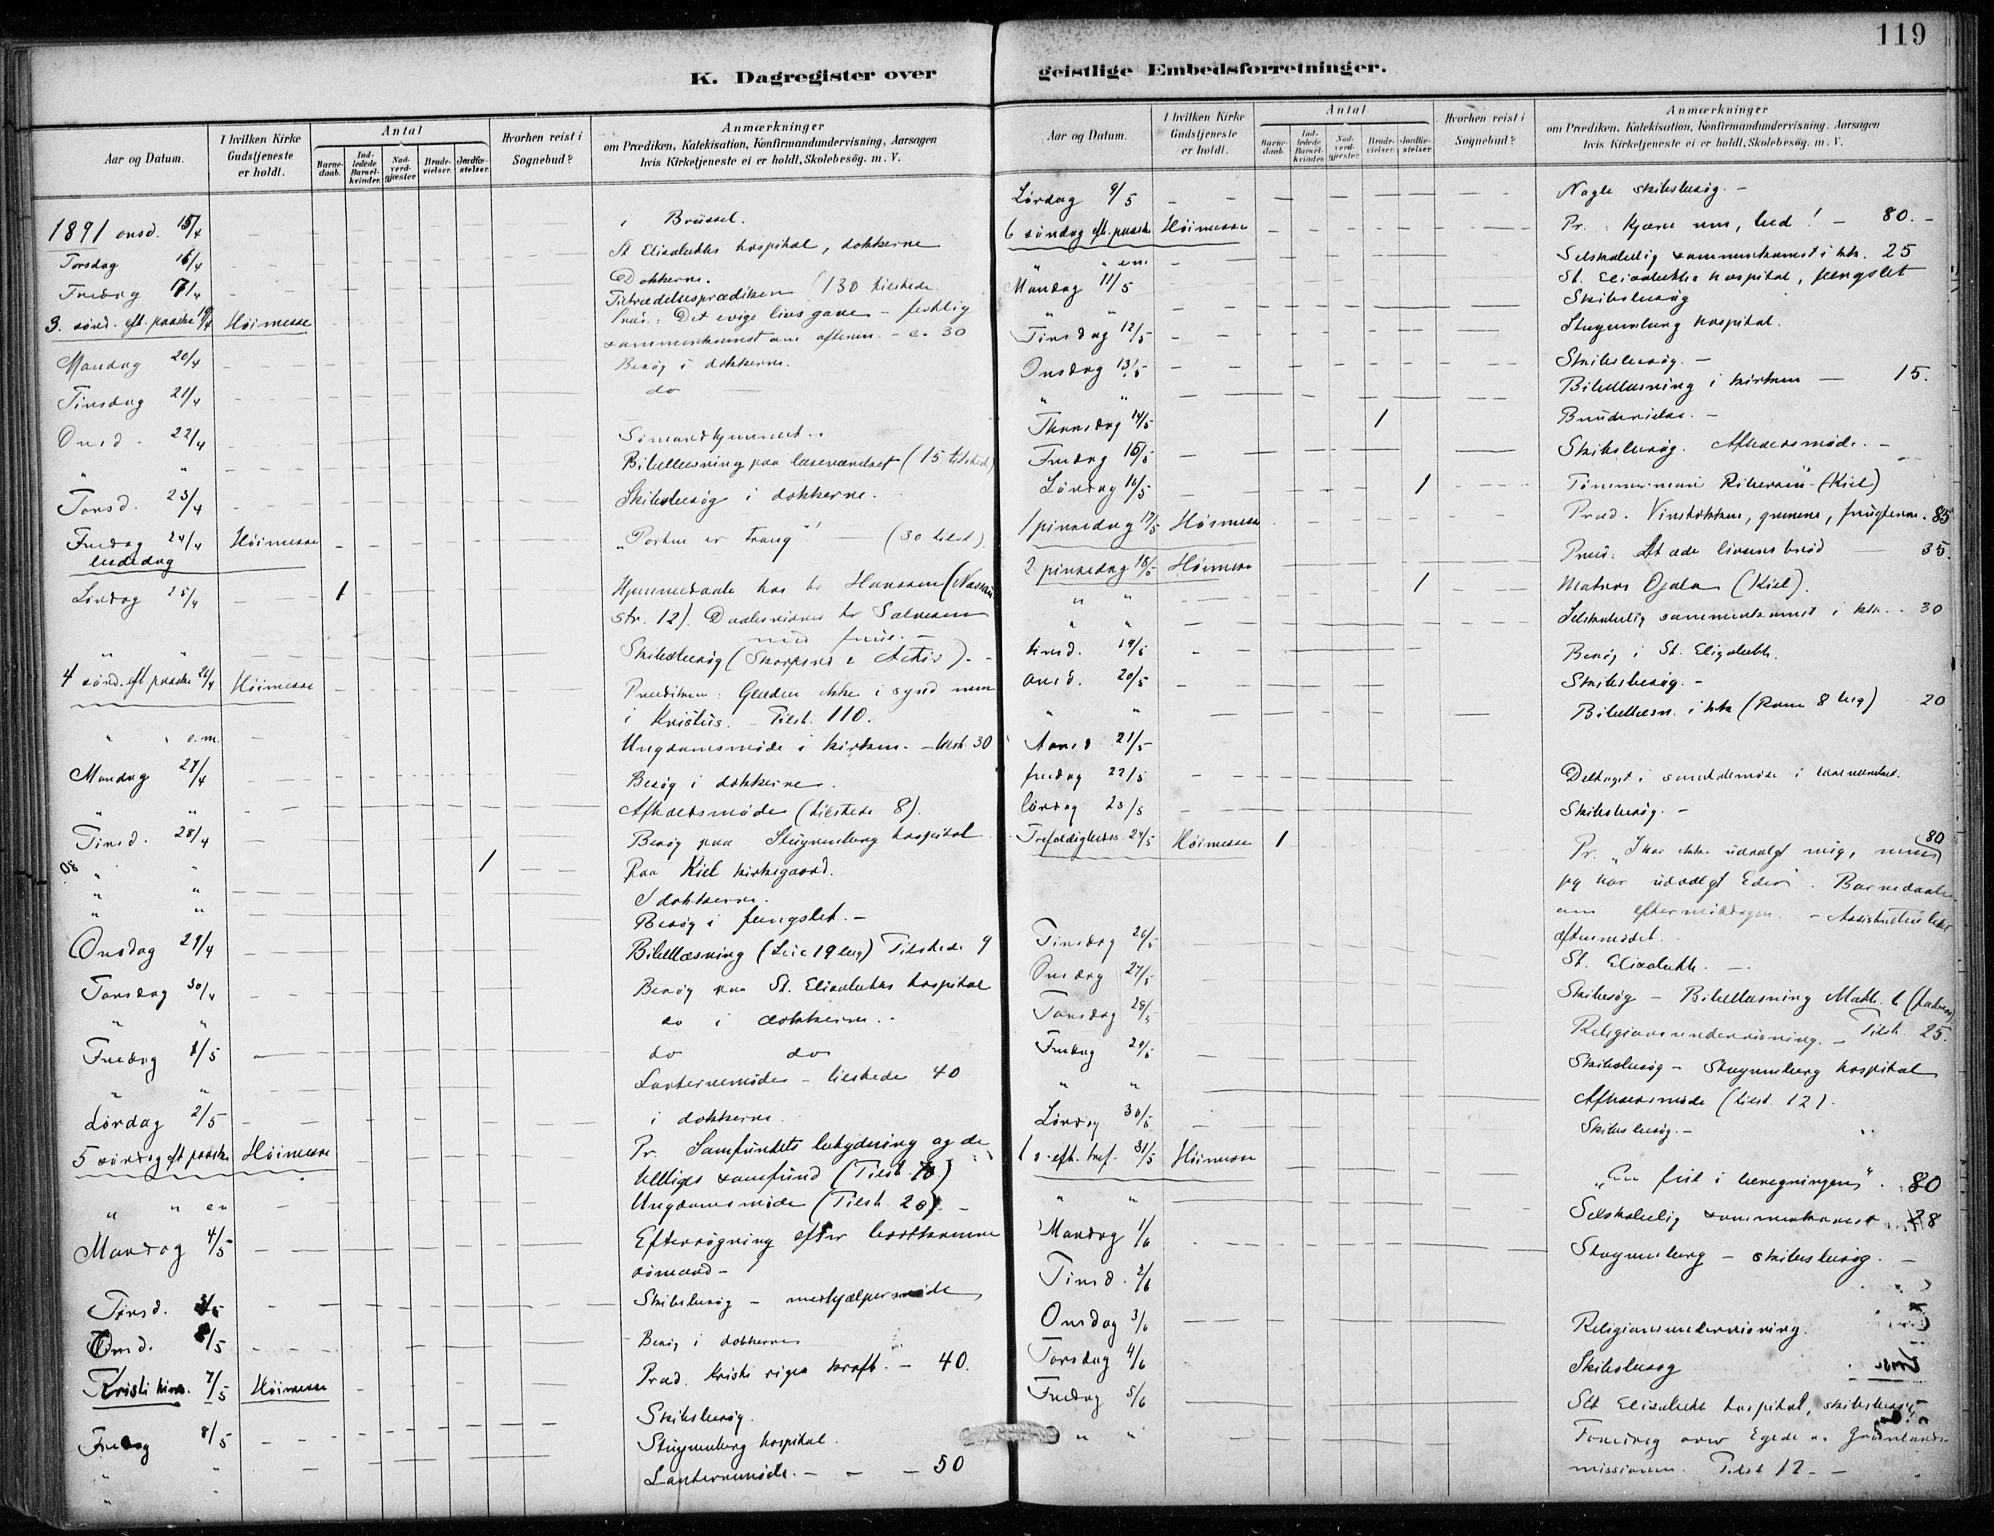 119
K. Dagregister over geistlige Embedsforretninger.
Aar og Datum.
I hvilken Kirke Gudstjeneste er holdt.
Antal
Barnedaab.
Indledede Barselkvinder.
Nadverdgjæster.
Brudevielser.
Jordfæstelser.
Hvorhen reist i Sognebud?
Anmærkninger
om Prædiken, Katekisation, Konfirmandundervisning, Aarsagen
hvis Kirketjeneste ei er holdt, Skolebesög. m. V.
1891 onsd. 15/4 i Brüssel.
Torsdag 16/4 St Elisabeths hospital, dokkerne
Fredag 17/4 Dokkerne.
3. sönd. eft. paaske 19/4 Höimesse Tiltrædelsesprædiken (130 tilstede
Præd.: Det evige livs gave - festlig
sammenkomst om aftenen - c. 30
Mandag 20/4 Besög i dokkerne.
Tirsdag 21/4 do
Onsd. 22/4 Sömandshjemmet.
" " Bibellæsning paa læseværelset (15 tilstede)
Torsd. 23/4 Skibsbesög i dokkerne.
Fredag 24/4 Höimesse "Porten er trang"! (30 tilst.)
bededag
Lördag 25/4 1 Hjemmedaab hos hr Hanssen
str. 12). Daabsvidner hr Salvesen
med frue.
" " Skibsbesög
4 sönd. eft paaske 26/4 Höimesse Prædiken: Glæden ikke i synd men
i Kristus. - Tilst. 110.
" " e.m. Ungdomsmöde i kirken. - tilst. 30
Mandag 27/4 Besög i dokkerne.
" " Afholdsmöde (tilstede 8).
Tirsd. 28/4 Besög paa Stuyvenberg hospital
" " 1 Paa Kiel kirkegaard.
" " I dokkerne.
" " Besög i fengslet. -
Onsdag 29/4 Bibellæsning (Luc 19 beg) Tilstede 9
Torsdag 30/4 Besög paa St. Elisabeths hospital
" " do i dokkerne.
Fredag 1/5 do do
" " Lanternemöde - tilstede 40
Lördag 2/5 i dokkerne
5 söndag eft paaske Höimesse Pr. Samfundets betydning og de
helliges samfund (Tilst. 70)
" " em Ungdomsmöde (Tilst. 20). -
Mandag 4/5 Eftersögning efter bortkomne
sömænd -
Tirsd. 5/5 Skibsbesög - medhjælpermöde
Onsd. 6/5 Besög i dokkerne
Kristi him. 7/5 Höimesse Præd. Kristi riges kraft. - 40.
Skibsbesög.
Fredag 8/5 Stuyvenberg hospital.
" Lanternemöde. - - - 50
Aar og Datum.
I hvilken Kirke Gudstjeneste er holdt.
Antal
Barnedaab.
Indledede Barselkvinder.
Nadverdgjæster.
Brudevielser.
Jordfæstelser.
Hvorhen reist i Sognebud?
Anmærkninger
om Prædiken, Katekisation, Konfirmandundervisning, Aarsagen
hvis Kirketjeneste ei er holdt, Skolebesög. m. V.
Lördag 9/5 Nogle skibsbesög. -
6 söndag eft. paaske Höimesse Pr.: Hjære 80. -
" " em Selskabelig sammenkomst i kk. 25
Mandag 11/5 St. Elisabeths hospital, fengslet
" " Skibsbesög
Tirsdag 12/5 Stuyvenberg hospital.
Onsdag 13/5 Skibsbesög. -
" " Bibellæsning i kirken - 15.
Thorsdag 14/5 1 Brudevielse. -
Fredag 15/5 Skibsbesög. Afholdsmöde. -
Lördag 16/5 1 Tömmermand (Kiel)
1 pinsedag 17/5 Höimesse Præd. Vinstokken, grenene, frugterne. 85
2 pinsedag 18/5 Höimesse Præd: At æde livsens bröd 35.
" " 1 Matros Ojala (Kiel).
" " Selskabelig sammenkomst i kk. 30
tirsd. 19/5 Besög i St. Elisabeth.
onsd. 20/5 Skibsbesög. -
" " Bibellæsn. i kk (Rom 8 beg) 20
Torsd 21/5
fredag 22/5 Deltaget i samtalemöde i læseværelset.
lördag 23/5 Skibsbesög. -
Trefoldigheds. 24/5 Höimesse 1 Pr. "I har ikke udvalgt mig, men 80
jeg har udvalgt Eder". Barnedaaben
om eftermiddagen. - Assistenten ledet
aftenmödet.
Tirsdag 26/5 St. Elisabeth. -
Onsdag 27/5 Skibesög - Bibellæsning Math. 6
Torsdag 28/5 Religionsundervisning. - Tilst. 25.
Fredag 29/5 Skibsbesög - Stuyvenberg hospital
" " Afholdsmöde (tilst. 12).
Lördag 30/5 Skibsbesög. -
1 s. eft. tref. 31/5 Höimesse "En feil i beregningen". 80
" " Selskabelig sammenkomst 28
Mandag 1/6 Stuyvenberg - skibsbesög. -
Tirsd. 2/6
Onsdag 3/6 Religionsundervisning.
Torsdag 4/6 Skibsbesög
Fredag 5/6 Skt Elisabeth hospital, skibsbesög
" " Foredrag over Egede og Grönlands
missionen. Tilst 12. -